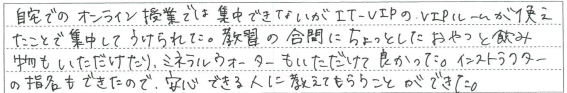 自宅でのオンライン授業では集中できないがIT-VIPのVIPルームが使え
たことで集中してうけられた。教習の合間にちょっとしたおやつと飲み
物もいただけたり、ミネラルウォーターもいただけて良かった。インストラクター
の指名もできたので、安心できる人に教えてもらうことができた。